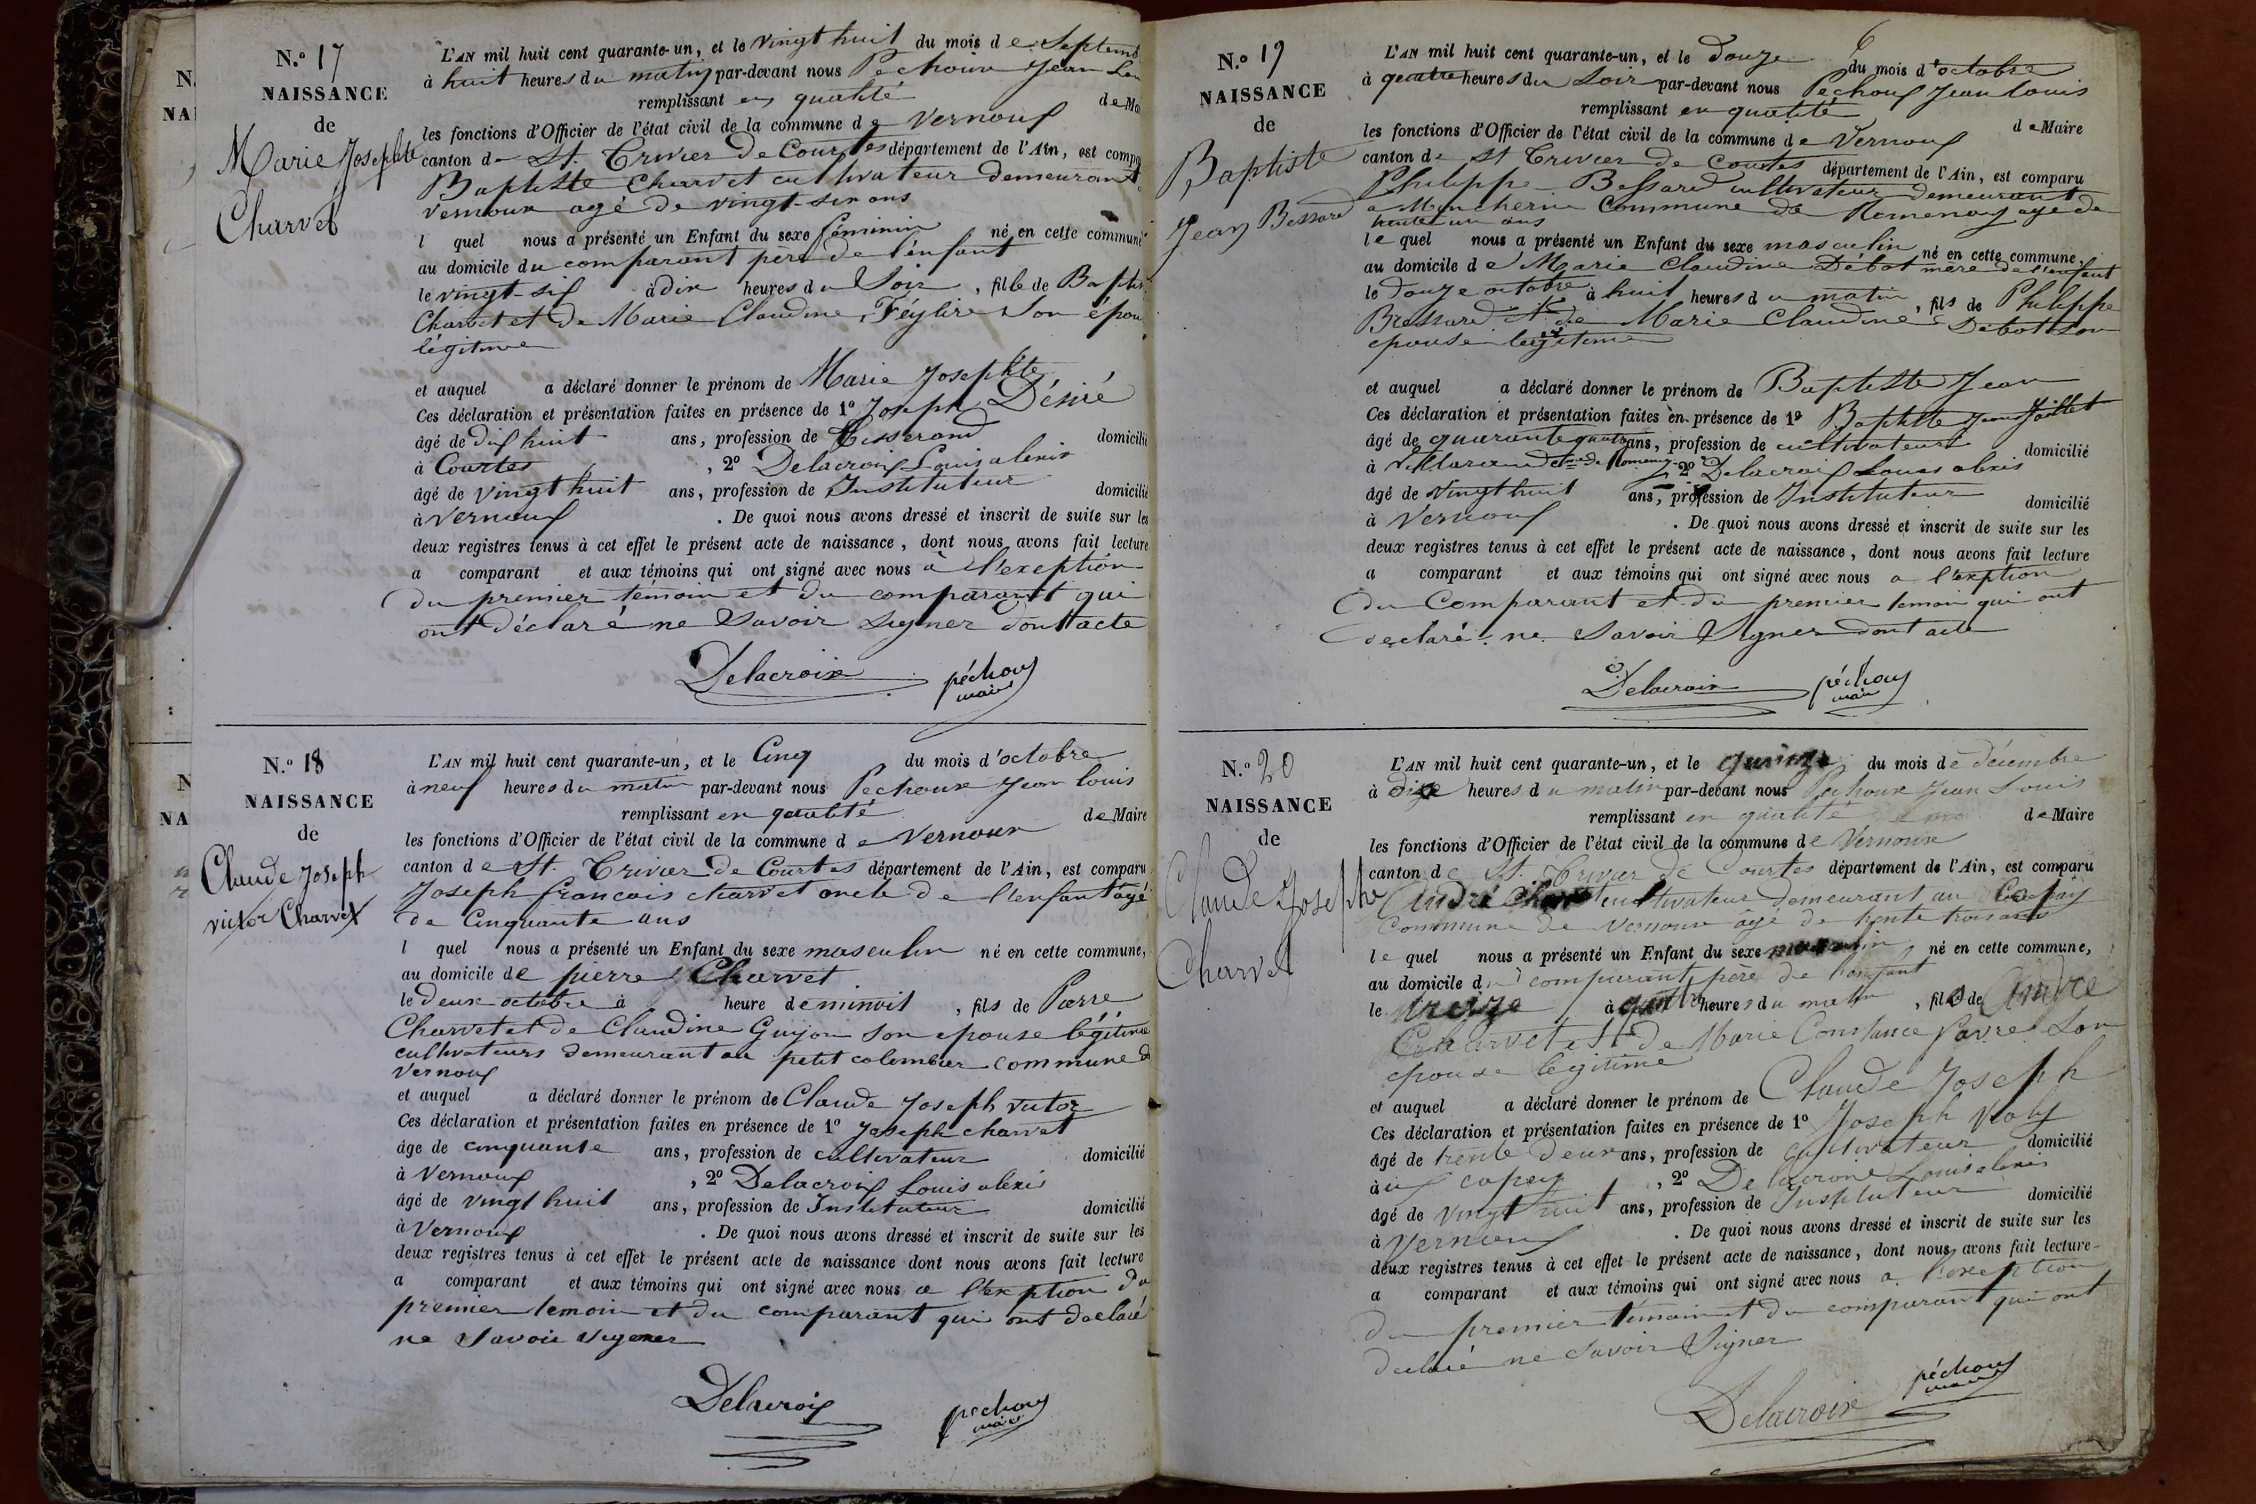 N.o 17
NAISSANCE
de
Marie Josephte
Charvet
L'AN mil huit cent quarante-un, et le vingt huit du mois de Septemb
à huit heures du matin par-devant nous Pechoux Jean Lou
remplissant en qualité de Ma
les fonctions d'Officier de l'état civil de la commune de Vernoux
canton de St. Trivier de Courtes département de l'Ain, est compa
Baptiste Charvet cultivateur demeurant
vernoux agé de vingt-six ans
l quel nous a présenté un Enfant du sexe féminin né en cette commune
au domicile du comparant pere de l'enfant
le vingt-six à dix heures du Soir, fille de Baptis
Charvet et de Marie Claudine Son épou
légitime
et auquel a déclaré donner le prénom de Marie Josephte
Ces déclaration et présentation faites en présence de 1o Joseph Désiré
âgé de dix huit ans, profession de tisserand domicilié
à Courtes, 2o Delacroix Louis alexis
âgé de vingt huit ans, profession de Instituteur domicilié
à Vernoux. De quoi nous avons dressé et inscrit de suite sur les
deux registres tenus à cet effet le présent acte de naissance, dont nous avons fait lecture
a comparant et aux témoins qui ont signé avec nous à l'exeption
du premier témoin et du comparant qui
ont déclaré ne Savoir Signer dont acte
Delacroix péchoux
maire
N.o 18
NAISSANCE
de
Claude Joseph
victor Charvet
L'AN mil huit cent quarante-un, et le Cinq du mois d'octobre
à neuf heures du matin par-devant nous Pechoux Jean Louis
remplissant en qualité de Maire
les fonctions d'Officier de l'état civil de la commune de Vernoux
canton de St. Trivier de Courtes département de l'Ain, est comparu
Joseph francois charvet oncle de l'enfant agé
de Cinquante ans
l quel nous a présenté un Enfant du sexe masculin né en cette commune,
au domicile de pierre Charvet
le deux octobre à heure de minuit, fils de Pierre
Charvet et de Claudine Guijon son epouse légitime
cultivateurs demeurant au petit colombier commune de
Vernoux
et auquel a déclaré donner le prénom de Claude Joseph victor
Ces déclaration et présentation faites en présence de 1o Joseph charvet
âgé de cinquante ans, profession de cultivateur domicilié
à Vernoux, 2o Delacroix Louis alexis
âgé de vingt huit ans, profession de Instituteur domicilié
à Vernoux. De quoi nous avons dressé et inscrit de suite sur les
deux registres tenus à cet effet le présent acte de naissance dont nous avons fait lecture
a comparant et aux témoins qui ont signé avec nous a l'exeption du
premier temoin et du comparant qui ont declaré
ne Savoir signer
Delacroix péchoux
maire
6
N.o 19
NAISSANCE
de
Baptiste
Jean Bessard
L'AN mil huit cent quarante-un, et le Douze du mois d'octobre
à quatre heures du Soir par-devant nous Pechoux Jean Louis
remplissant en qualité de Maire
les fonctions d'Officier de l'état civil de la commune de Vernoux
canton de St Trivier de Courtes département de l'Ain, est comparu
Philippe Bessard cultivateur demeurant
a commune de Romenay agé de
trente un ans
le quel nous a présenté un Enfant du sexe masculin né en cette commune,
au domicile de Marie Claudine Débot mere de l'enfant
le douze octobre à huit heures du matin, fils de Philippe
Bressard et de Marie Claudine Debot son
epouse legitime
et auquel a déclaré donner le prénom de Baptiste Jean
Ces déclaration et présentation faites en présence de 1o Baptiste Jean Jaillet
âgé de quarante quatre ans, profession de cultivateur domicilié
à de Romenay 2o Delacroix Louis alexis
âgé de vingt huit ans, profession de Instituteur domicilié
à Vernoux. De quoi nous avons dressé et inscrit de suite sur les
deux registres tenus à cet effet le présent acte de naissance, dont nous avons fait lecture
a comparant et aux témoins qui ont signé avec nous a l'exption
du Comparant et du premier temoin qui ont
declaré ne Savoir Signer dont acte
Delacroix péchoux
maire
N.o 20
NAISSANCE
de
Claude Josephe
Charvet
L'AN mil huit cent quarante-un, et le quinze du mois de décembre
à dix heures du matin par-devant nous Pechoux Jean Louis
remplissant en qualité de Maire
les fonctions d'Officier de l'état civil de la commune de Vernoux
canton de St. Trivier de Courtes département de l'Ain, est comparu
André Charvet cultivateur demeurant au Copey
Commune de Vernoux âgé de trente trois ans
le quel nous a présenté un Enfant du sexe masculin né en cette commune,
au domicile du comparant père de l'enfant
le treize à quatre heures du matin, fils de André
Charvet et de Marie Constance Favre Son
epouse légitime
et auquel a déclaré donner le prénom de Claude Joseph
Ces déclaration et présentation faites en présence de 1o Joseph
âgé de trente deux ans, profession de cultivateur domicilié
à copey, 2o Delacroix Louis alexis
âgé de vingt huit ans, profession de Instituteur domicilié
à Vernoux. De quoi nous avons dressé et inscrit de suite sur les
deux registres tenus à cet effet le présent acte de naissance, dont nous avons fait lecture
a comparant et aux témoins qui ont signé avec nous a l'exeption
du premier témoin et du comparant qui ont
declaré ne Savoir Signer
Delacroix péchoux
maire